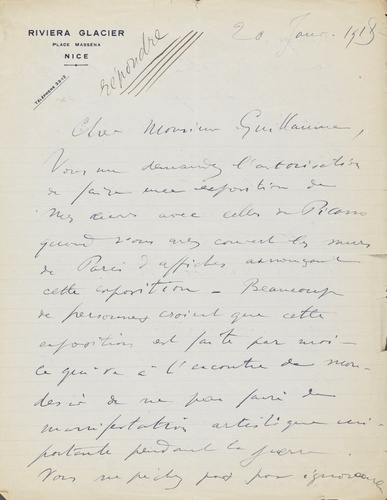 RIVIERA GLACIER
PLACE MASSÉNA
NICE
TÉLÉPHONE 53-13
répondre
20 Janv. 1918
Cher Monsieur Guillaume,
Vous me demandez l'autorisation
de faire une exposition de
mes œuvres avec celles de Picasso
quand vous avez couvert les murs
de Paris d'affiches annonçant
cette exposition — Beaucoup
de personnes croient que cette
exposition est faite par moi —
ce qui va à l'encontre de mon
désir de ne pas faire de
manifestation artistique im-
portante pendant la guerre.
Vous ne péchez pas par ignorance